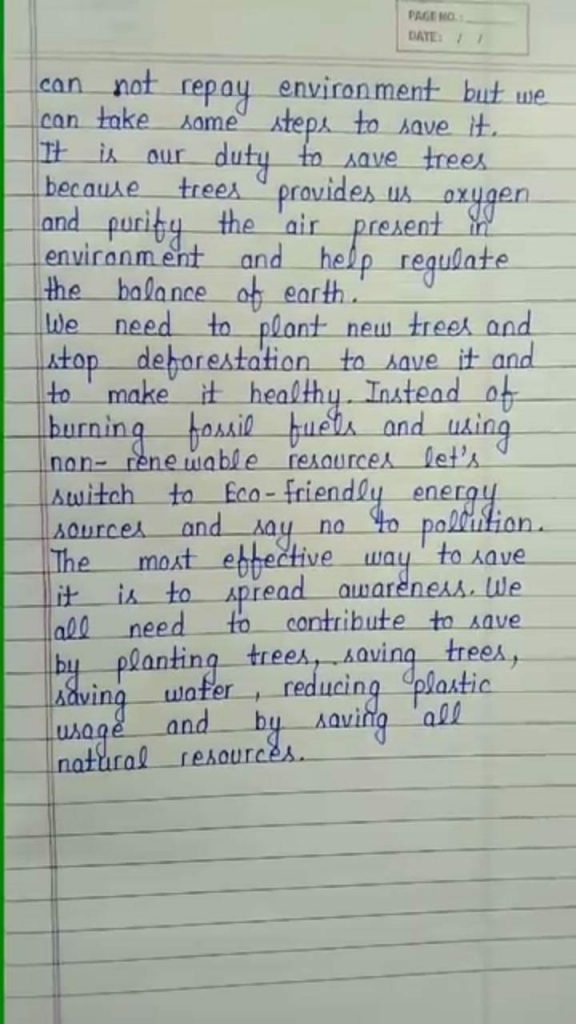 PAGE NO.:
DATE: / /
can not repay environment but we
can take some steps to save it.
It is our duty to save trees
because trees provides us oxygen
and purify the air present in
environment and help regulate
the balance of earth.
We need to plant new trees and
stop deforestation to save it and
to make it healthy. Instead of
burning fossil fuels and using
non-renewable resources let's
switch to Eco-friendly energy
sources and say no to pollution.
The most effective way to save
it is to spread awareness. We
all need to contribute to save
by planting trees, saving trees,
saving water, reducing plastic
usage and by saving all
natural resources.